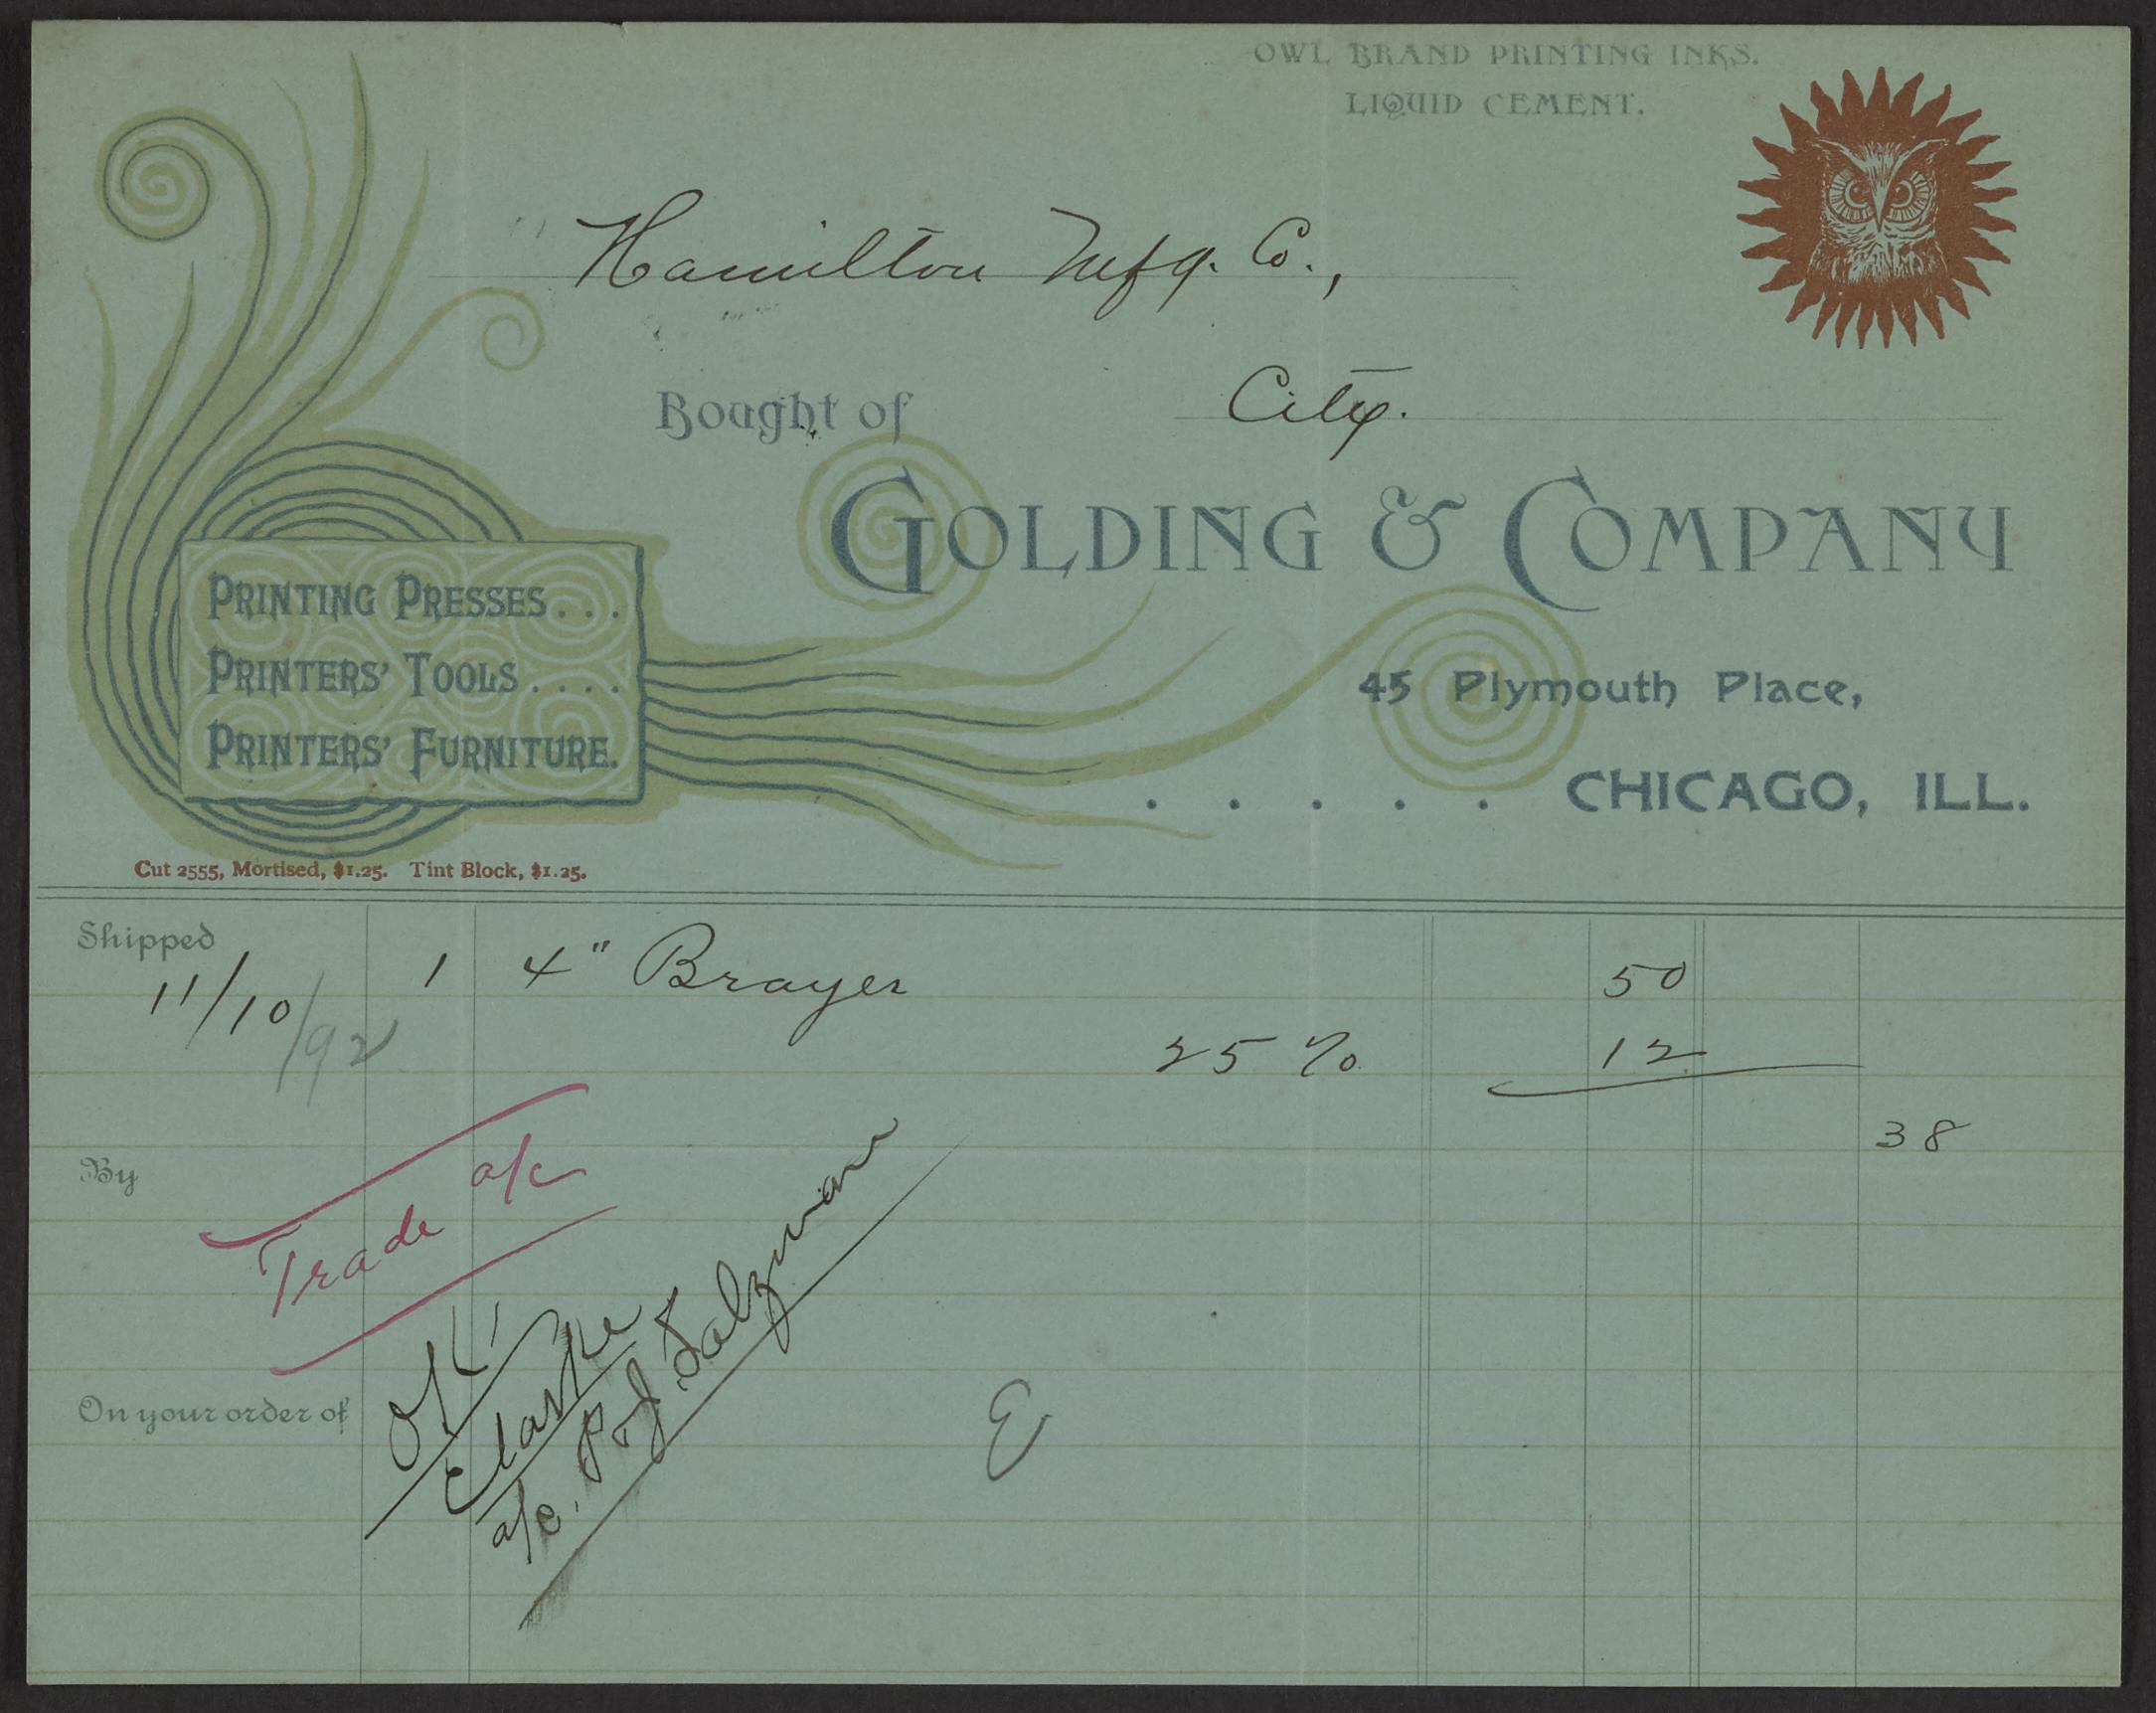 OWL BRAND PRINTING INKS.
LIQUID CEMENT.
Hamilton Mfg. Co.,
Bought of City.
GOLDING & COMPANY
PRINTING PRESSES . . .
PRINTERS' TOOLS . . . .
PRINTERS' FURNITURE.
45 Plymouth Place,
. . . . . CHICAGO, ILL.
Cut 2555, Mortised, $1.25. Tint Block, $1.25.
Shipped
11/10/92 1 4" Brayer 50
25 % 12
38
By
Trade a/c
On your order of
OK!
Clarke
a/c. P.J. Salzman
E